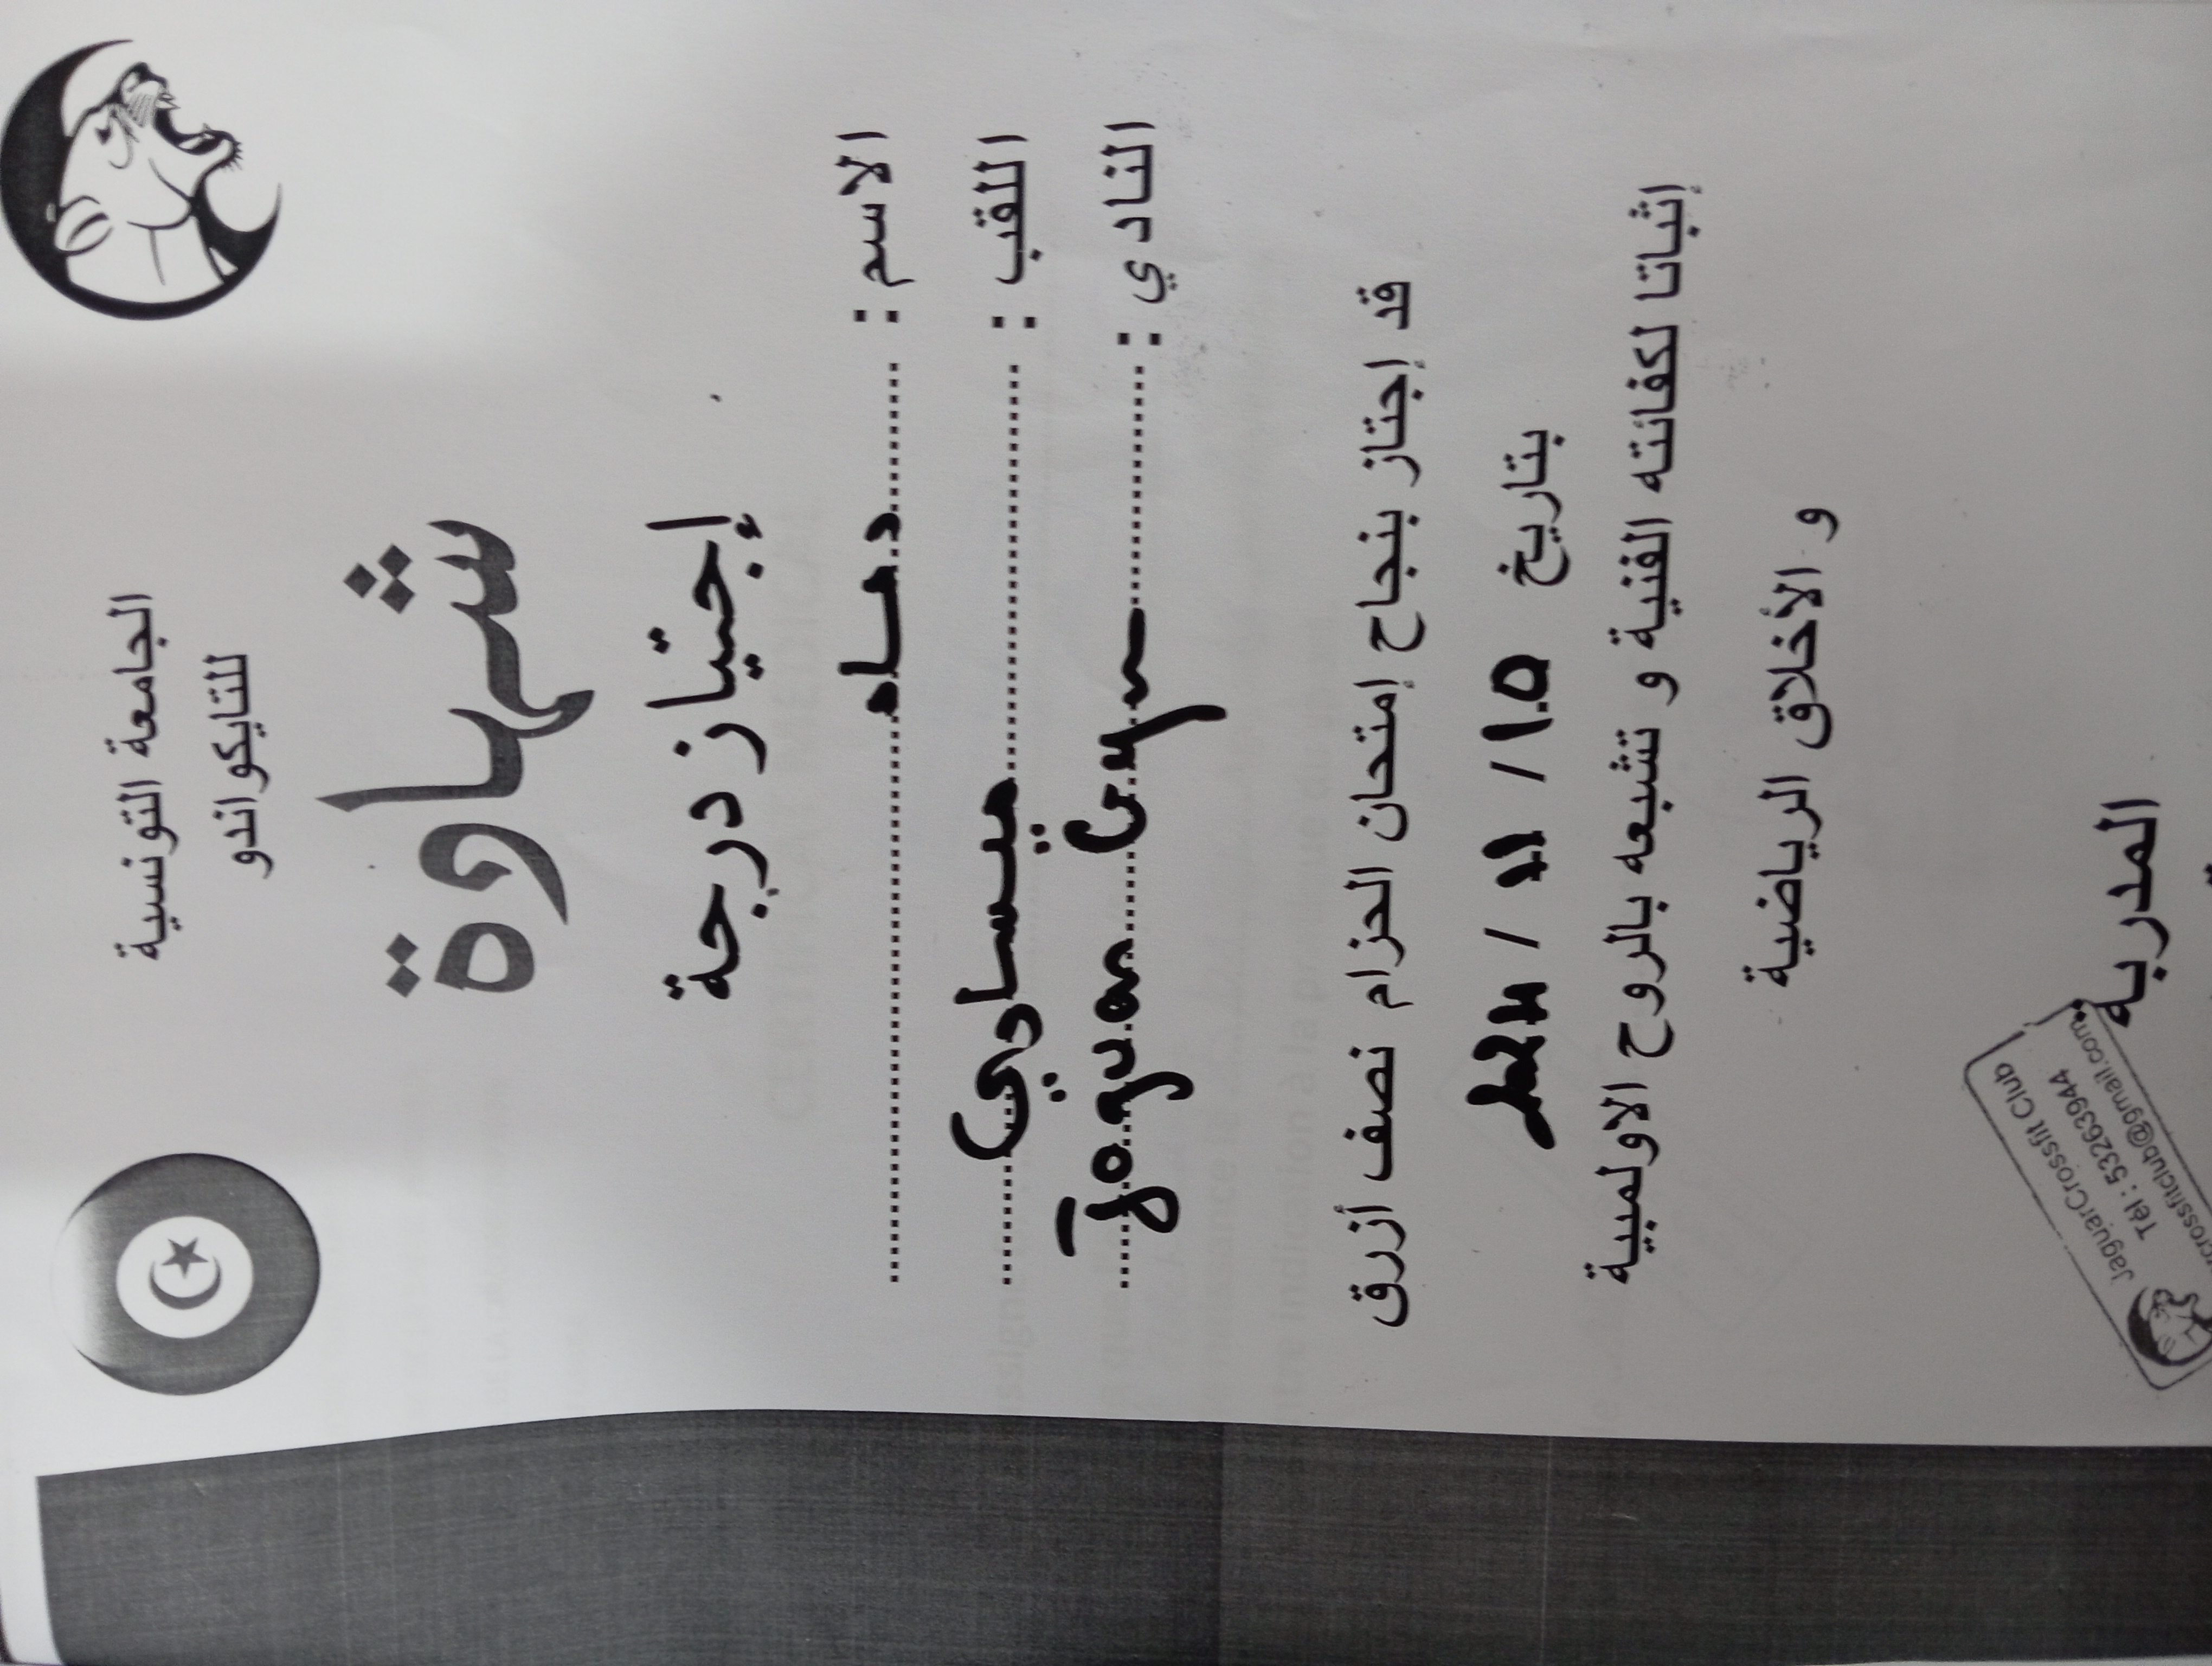 الجامعة التونسية
للتايكواندو
شهادة
إجتياز درجة
الاسم :
اللقب : عيساوي
النادي : Jaguar Gym
قد إجتاز بنجاح إمتحان الحزام نصف أزرق
بتاريخ
إثباتا لكفائته الفنية و تشبعه بالروح الاولمبية
و الأخلاق الرياضية
المدربة
JaguarCrossfit Club
Tél : 53263944
rcrossfitclub@gmail.com